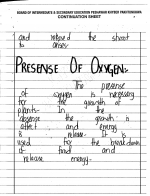 BOARD OF INTERMEDIATE & SECONDARY EDUCATION PESHAWAR KHYBER PAKHTUNKHWA
CONTINUATION SHEET
and the shoot
to
PRESENSE OF OXYGEN:-
The presense
of oxygen is necessary
for the growth of
plants. In the
absense the growth is
effect and
release. It is
used for the break down
of food and
release energy.